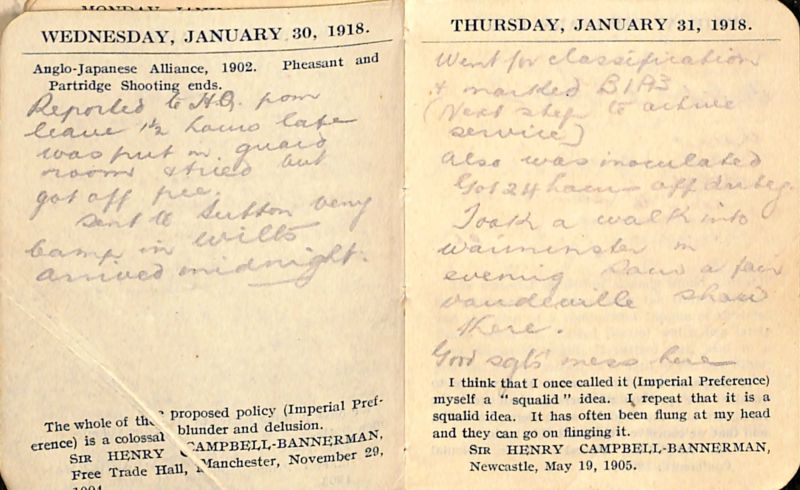 WEDNESDAY, JANUARY 30, 1918.
Anglo-Japanese Alliance, 1902. Pheasant and
Partridge Shooting ends.
Reported to H.Q. from
leave 1½ hours late
was put in guard
room & tried but
got off free.
Sent to Sutton Veny
Camp in Wilts
arrived midnight.
The whole of the proposed policy (Imperial Pref-
erence) is a colossal blunder and delusion.
SIR HENRY CAMPBELL-BANNERMAN,
Free Trade Hall, Manchester, November 29,
THURSDAY, JANUARY 31, 1918.
Went for classification
& marked B1A3
(Next step to active
service)
Also was inoculated
Got 24 hours off duty.
Took a walk into
Warminster in
evening saw a fair
vaudeville show
there.
Good sgts mess here
I think that I once called it (Imperial Preference)
myself a "squalid" idea. I repeat that it is a
squalid idea. It has often been flung at my head
and they can go on flinging it.
SIR HENRY CAMPBELL-BANNERMAN,
Newcastle, May 19, 1905.